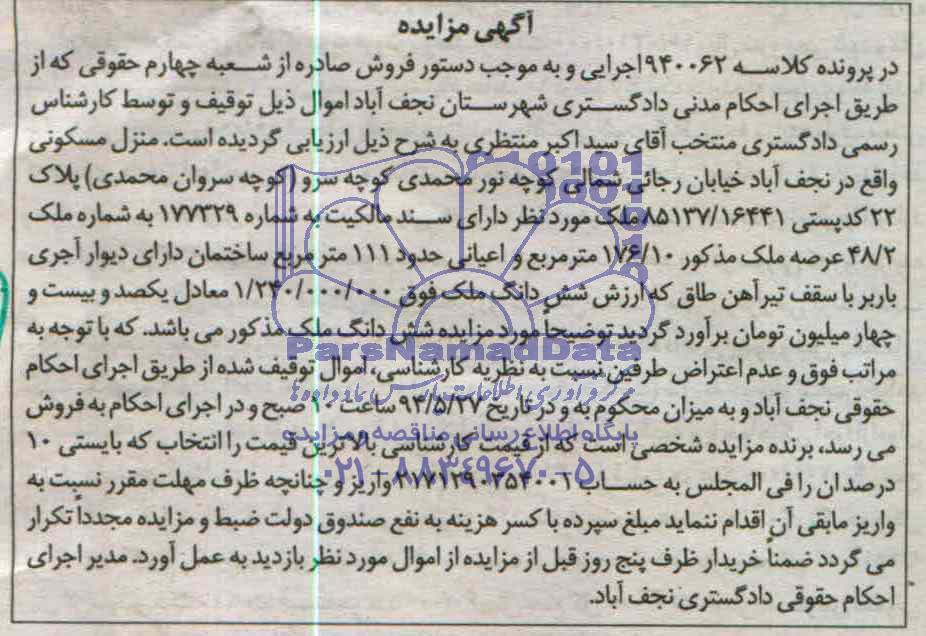 آگهی مزایده
در پرونده کلاسه ۹۴۰۰۶۲ اجرایی و به موجب دستور فروش صادره از شعبه چهارم حقوقی که از
طریق اجرای احکام مدنی دادگستری شهرستان نجف آباد اموال ذیل توقیف و توسط کارشناس
رسمی دادگستری منتخب آقای سید اکبر منتظری به شرح ذیل ارزیابی گردیده است. منزل مسکونی
واقع در نجف آباد خیابان رجائی شمالی کوچه نور محمدی کوچه سرو (کوچه سروان محمدی) پلاک
۲۲ کدپستی ۸۵۱۳۷/۱۶۴۴۱ ملک مورد نظر دارای سند مالکیت به شماره ۱۷۷۳۲۹ به شماره ملک
۴۸/۲ عرصه ملک مذکور ۱۷۶/۱۰ مترمربع و اعیانی حدود ۱۱۱ متر مربع ساختمان دارای دیوار آجری
باربر با سقف تیرآهن طاق که ارزش شش دانگ ملک فوق ۱/۲۴۰/۰۰۰/۰۰۰ معادل یکصد و بیست و
چهار میلیون تومان برآورد گردید توضیحاً مورد مزایده شش دانگ ملک مذکور می باشد. که با توجه به
مراتب فوق و عدم اعتراض طرفین نسبت به نظریه کارشناسی، اموال توقیف شده از طریق اجرای احکام
حقوقی نجف آباد و به میزان محکوم به و در تاریخ ۹۴/۵/۲۷ ساعت ۱۰ صبح و در اجرای احکام به فروش
می رسد، برنده مزایده شخصی است که از قیمت کارشناسی بالاترین قیمت را انتخاب که بایستی ۱۰
درصد ان را فی المجلس به حساب واریز و چنانچه ظرف مهلت مقرر نسبت به
واریز مابقی آن اقدام ننماید مبلغ سپرده با کسر هزینه به نفع صندوق دولت ضبط و مزایده مجدداً تکرار
می گردد ضمناً خریدار ظرف پنج روز قبل از مزایده از اموال مورد نظر بازدید به عمل آورد. مدیر اجرای
احکام حقوقی دادگستری نجف آباد.
ParsNamadData
مرکز فرآوری اطلاعات پارس نماد داده ها
پایگاه اطلاع رسانی مناقصه و مزایده
۰۲۱-۸۸۳۴۹۶۷۰-۵